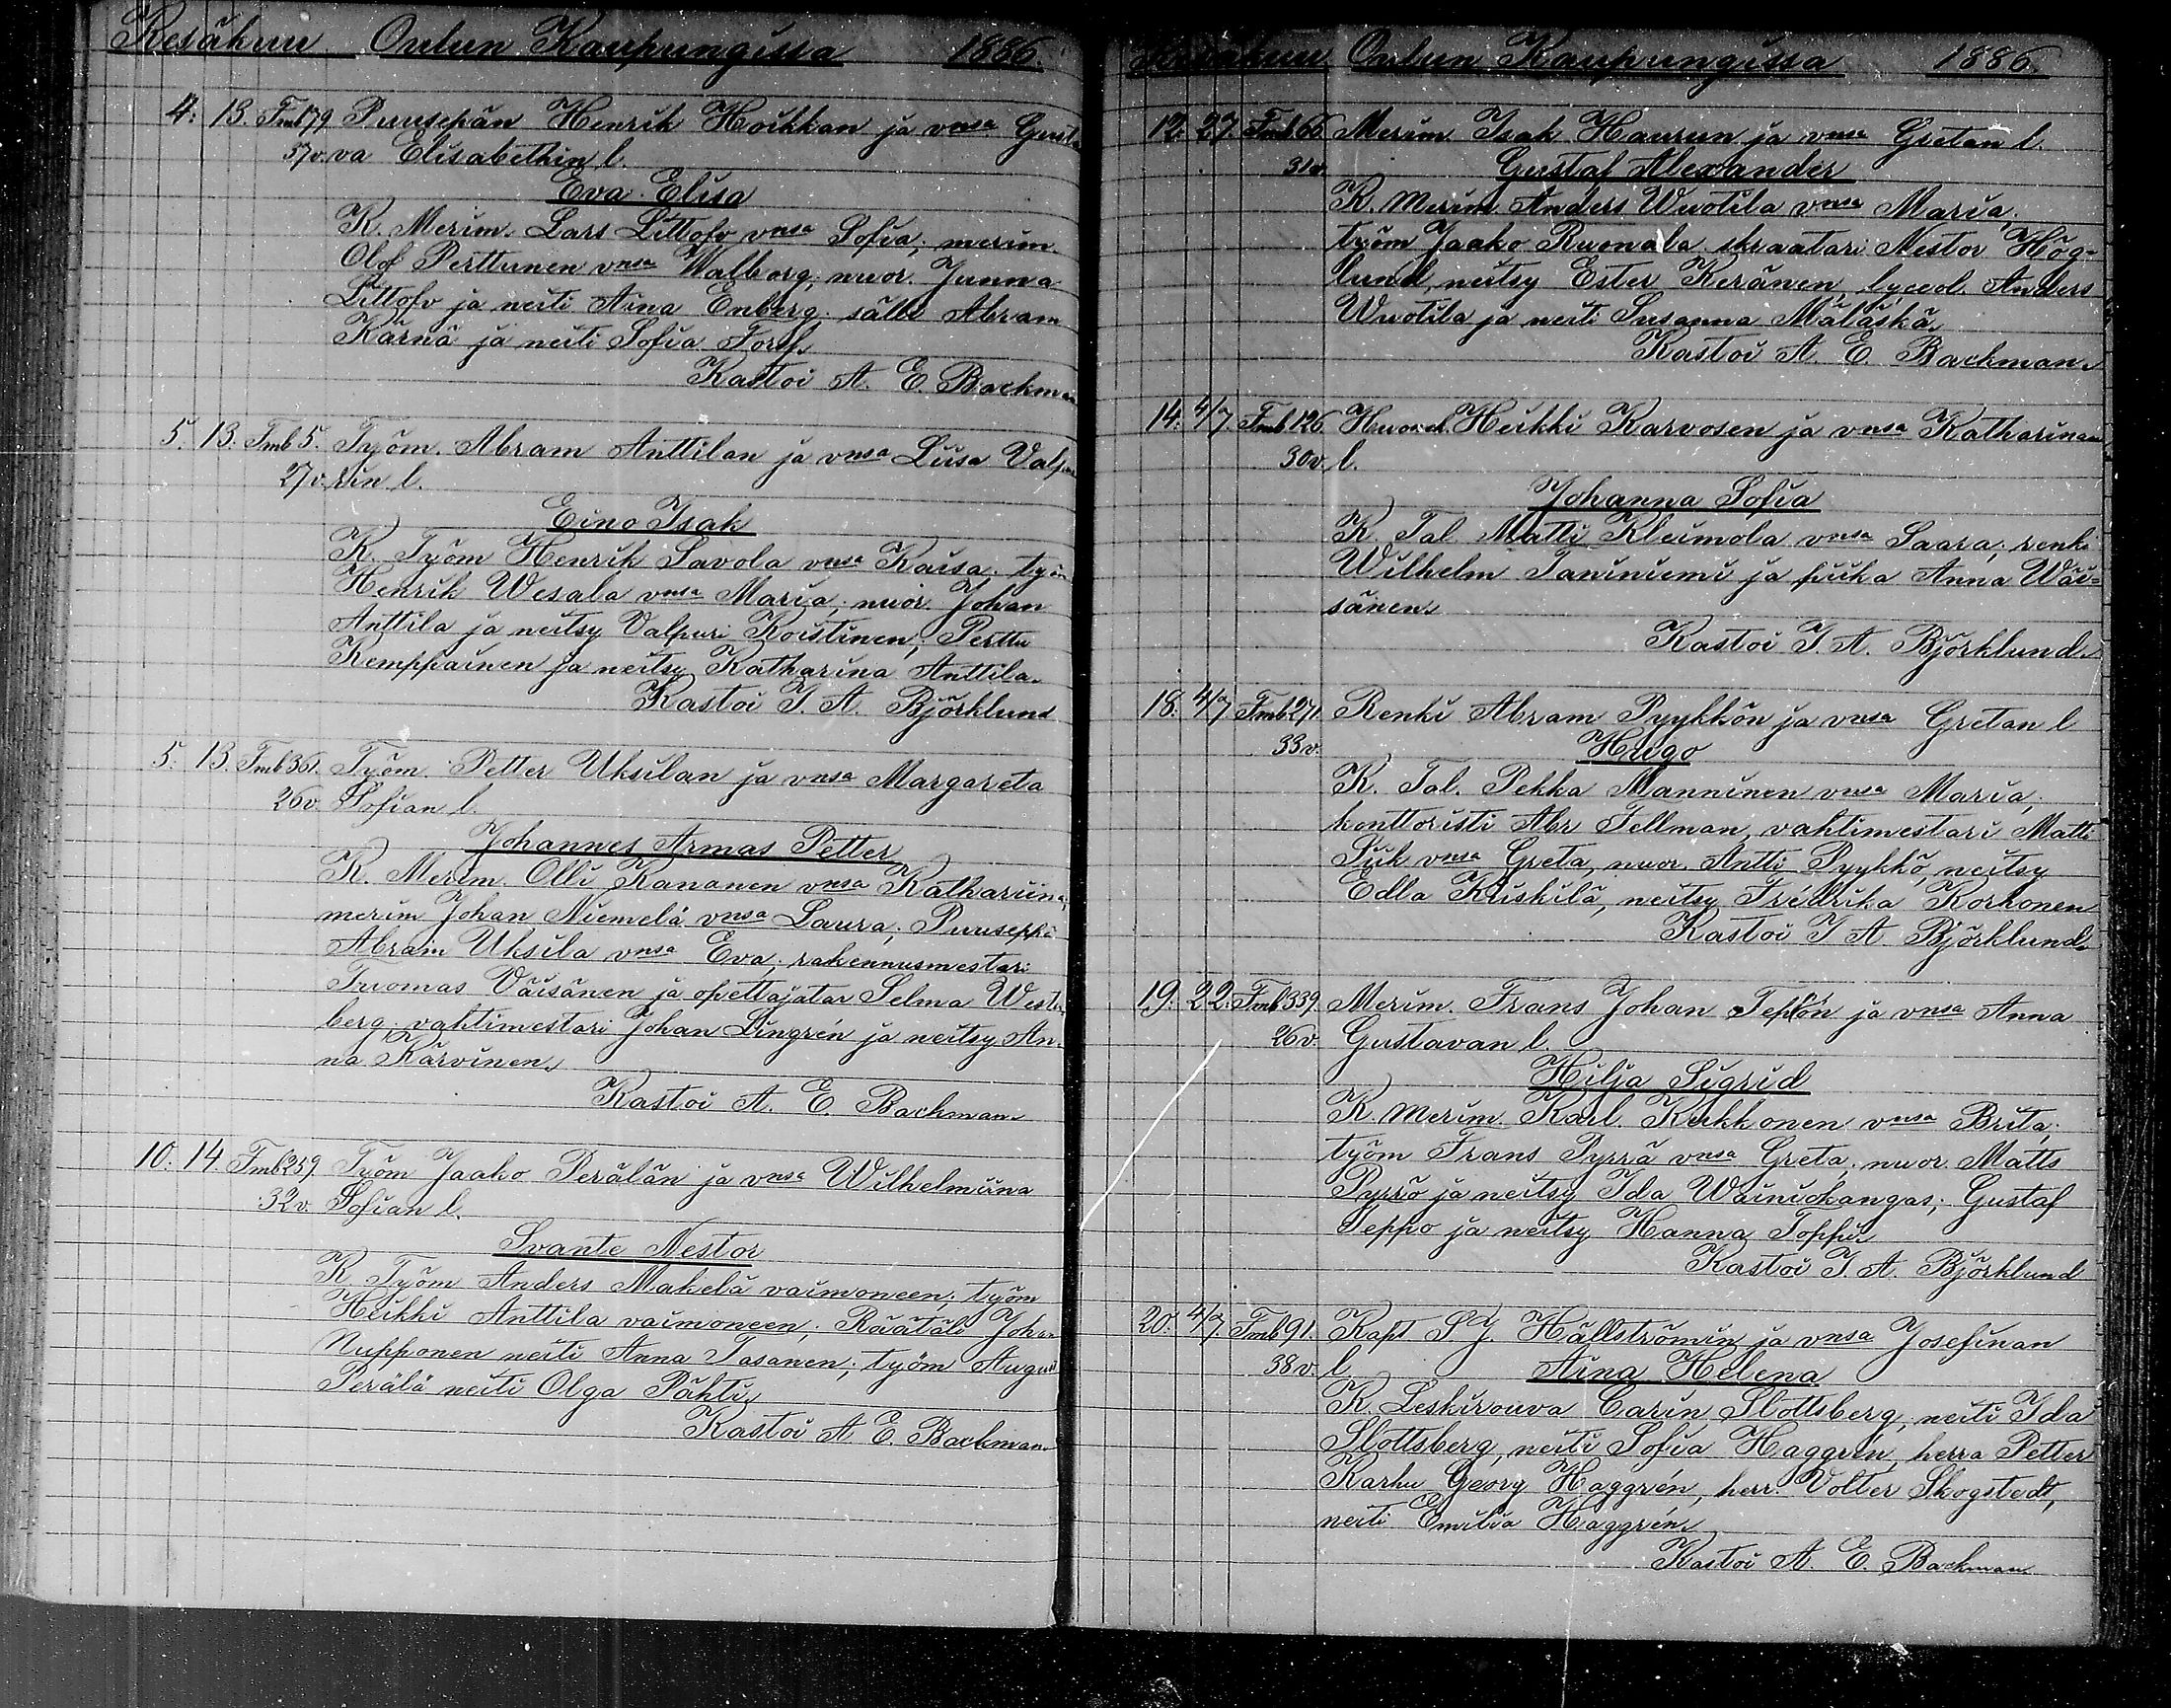 Kesäkuu Oulun Kaupungissa 1886.
4. 13. Tmb 179 Puusepän Henrik Hoikkan ja vmsa Gusta
37v. va Elisabethin l.
Eva Elisa
K. Merim. Lars Littofv vmsa Sofia; merim.
Olof Perttunen vmsa Walborg; nuor. Junna
Littofv ja neiti Aina Enberg. sälli Abram
Kärnä ja neiti Sofia
Kastoi A. E. Backman
5. 13. Tmb 5. Työm. Abram Anttilan ja vmsa Liisa Valpu
27v. rin l.
Eino Isak
K. Työm Henrik Savola vmsa Kaisa. työm
Henrik Wesala vmsa Maria; nuor. Johan
Anttila ja neitsy Valpuri Koistinen; Perttu
Kemppainen ja neitsy Katharina Anttila.
Kastoi I. A. Björklund
5. 13. Tmb 361. Työm. Petter Uksilan ja vmsa Margareta
26v. Sofian l.
Johannes Armas Petter
K. Merim. Olli Kananen vmsa Kathariina,
merim Johan Niemelä vmsa Laura; Puuseppä
Abram Uksila vmsa Eva; rakennusmestari
Tuomas Väisänen ja opettajatar Selma West-
berg; vahtimestari Johan Lingrén ja neitsy An-
na Karvinen.
Kastoi A. E. Backman.
10. 14. Tmb 259. Työm Jaako Perälän ja vmsa Wilhelmiina
32v. Sofian l.
Svante Nestor
K. Työm Anders Makelä vaimoneen; työm
Heikki Anttila vaimoneen; Räätäli Johan
Nupponen neiti Anna Tasanen; työm August
Perälä neiti Olga Pähti.
Kastoi A E. Backman.
Kesäkuu Oulun Kaupungissa 1886.
12. 27. Tmb 66 Merim. Isak Haurun ja vmsa Gretan l.
31v. Gustaf Alexander
K. Merim. Anders Wuotila vmsa Maria,
työm Jaako Ruonala skraatari Nestor Hög-
lund, neitsy Ester Keränen lyceol. Anders
Wuotila ja neiti Susanna Mäläskä.
Kastoi A. E. Backman.
14. 4/7 Tmb 126 Heikki Karvosen ja vmsa Katharinan
30v. l.
Johanna Sofia
K. Tal. Matti Kleimola vmsa Saara; renki
Wilhelm Taniniemi ja piika Anna Wäi=
sänen.
Kastoi I. A. Björklund.
18. 4/7 Tmb 271. Renki Abram Pyykkön ja vmsa Gretan l
33v. Hugo
K. Tal. Pekka Manninen vmsa Maria;
konttoristi Abr Fellman, vahtimestari Matti
Siik vmsa Greta, nuor. Antti Pyykkö, neitsy
Edla Kriskilä, neitsy Fredrika Korhonen
Kastoi I A Björklund.
19. 22. Tmb 339 Merim. Frans Johan Tepon ja vmsa Anna
26v. Gustavan l.
Hilja Sigrid
K. Merim. Karl Kukkonen vmsa Brita;
työm Frans Pyrrä vmsa Greta. nuor. Matts
Pyrrö ja neitsy Ida Wainickangas; Gustaf
Teppo ja neitsy Hanna Toppi.
Kastoi I. A. Björklund
20. 4/7. Tmb 91. Kapt S J. Hällströmin ja vmsa Josefinan
38v. l. Aina Helena.
K. Leskirouva Carin Slottsberg, neiti Ida
Slottsberg, neiti Sofia Haggrén, herra Petter
Karhu Georg Haggrén, herr. Volter Skogstedt,
neiti Emilia Haggrén.
Kastoi A. E. Backman.